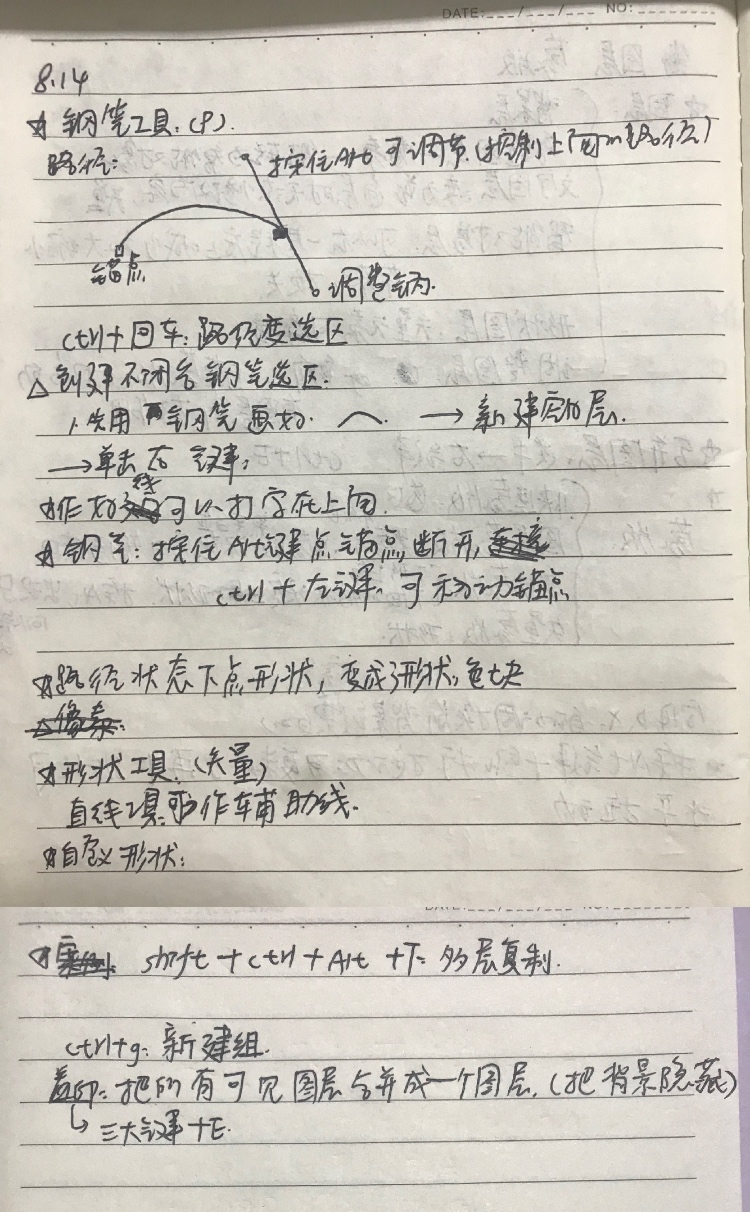 DATE:___/___/___ NO:
8.14
☆ 钢笔工具:(P).
路径: 按住Alt 可调节.(控制上面的路径)
锚点
调整柄.
ctrl+回车:路径变选区
△创建不闭合钢笔选区:
1,使用 钢笔画好. → 新建空白层.
→单击右键;
☆作好线可以打字在上面.
☆钢笔:按住Alt键点锚点,断开,
ctrl + 左键.可移动锚点
☆路径状态下点形状,变成了形状,色块
像素.
☆形状工具.(矢量)
直线工具:可作车辅助线.
☆自定义形状:
☆案例: shift + ctrl + Alt + T= 多层复制.
ctrl+g: 新建组.
盖印:把所有可见图层合并成一个图层.(把背景隐藏)
三大键+E.